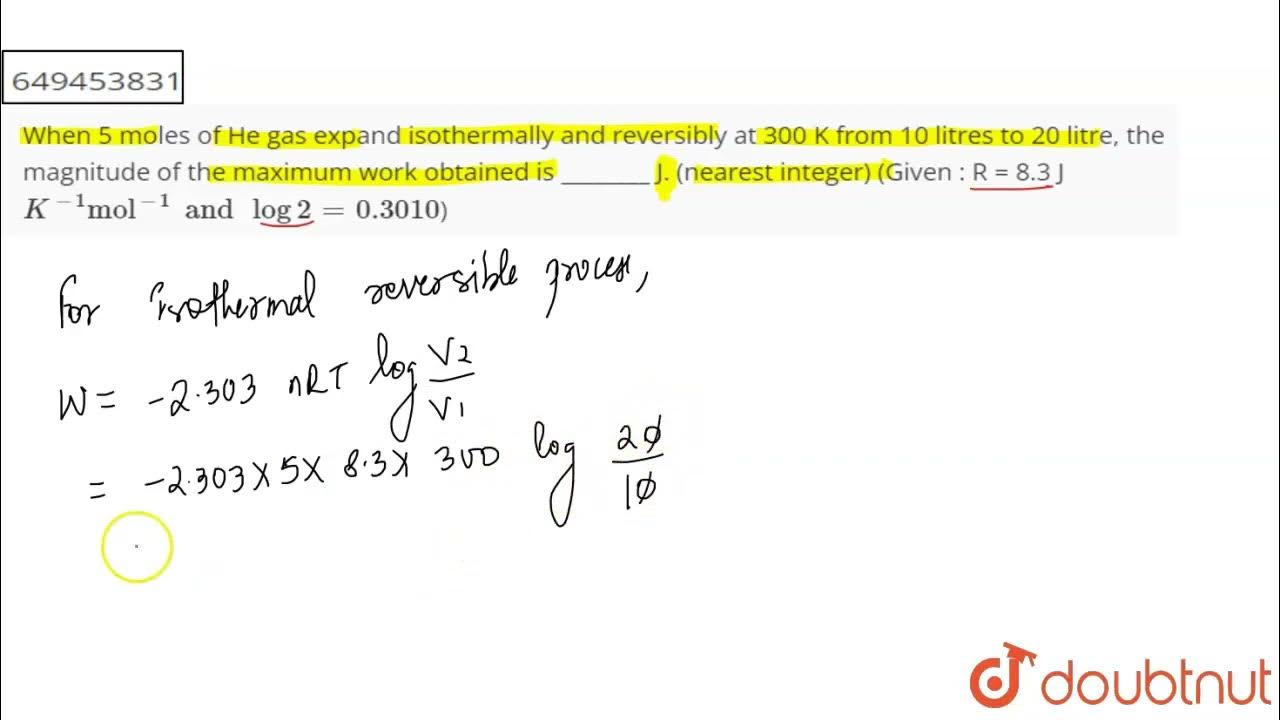 649453831
When 5 moles of He gas expand isothermally and reversibly at 300 K from 10 litres to 20 litre, the
magnitude of the maximum work obtained is ________ J. (nearest integer) (Given : R = 8.3 J
K⁻¹mol⁻¹ and log 2 = 0.3010)
For isothermal reversible process,
W = -2.303 nRT log V2/V1
= -2.303 X 5 X 8.3 X 300 log 20/10
doubtnut